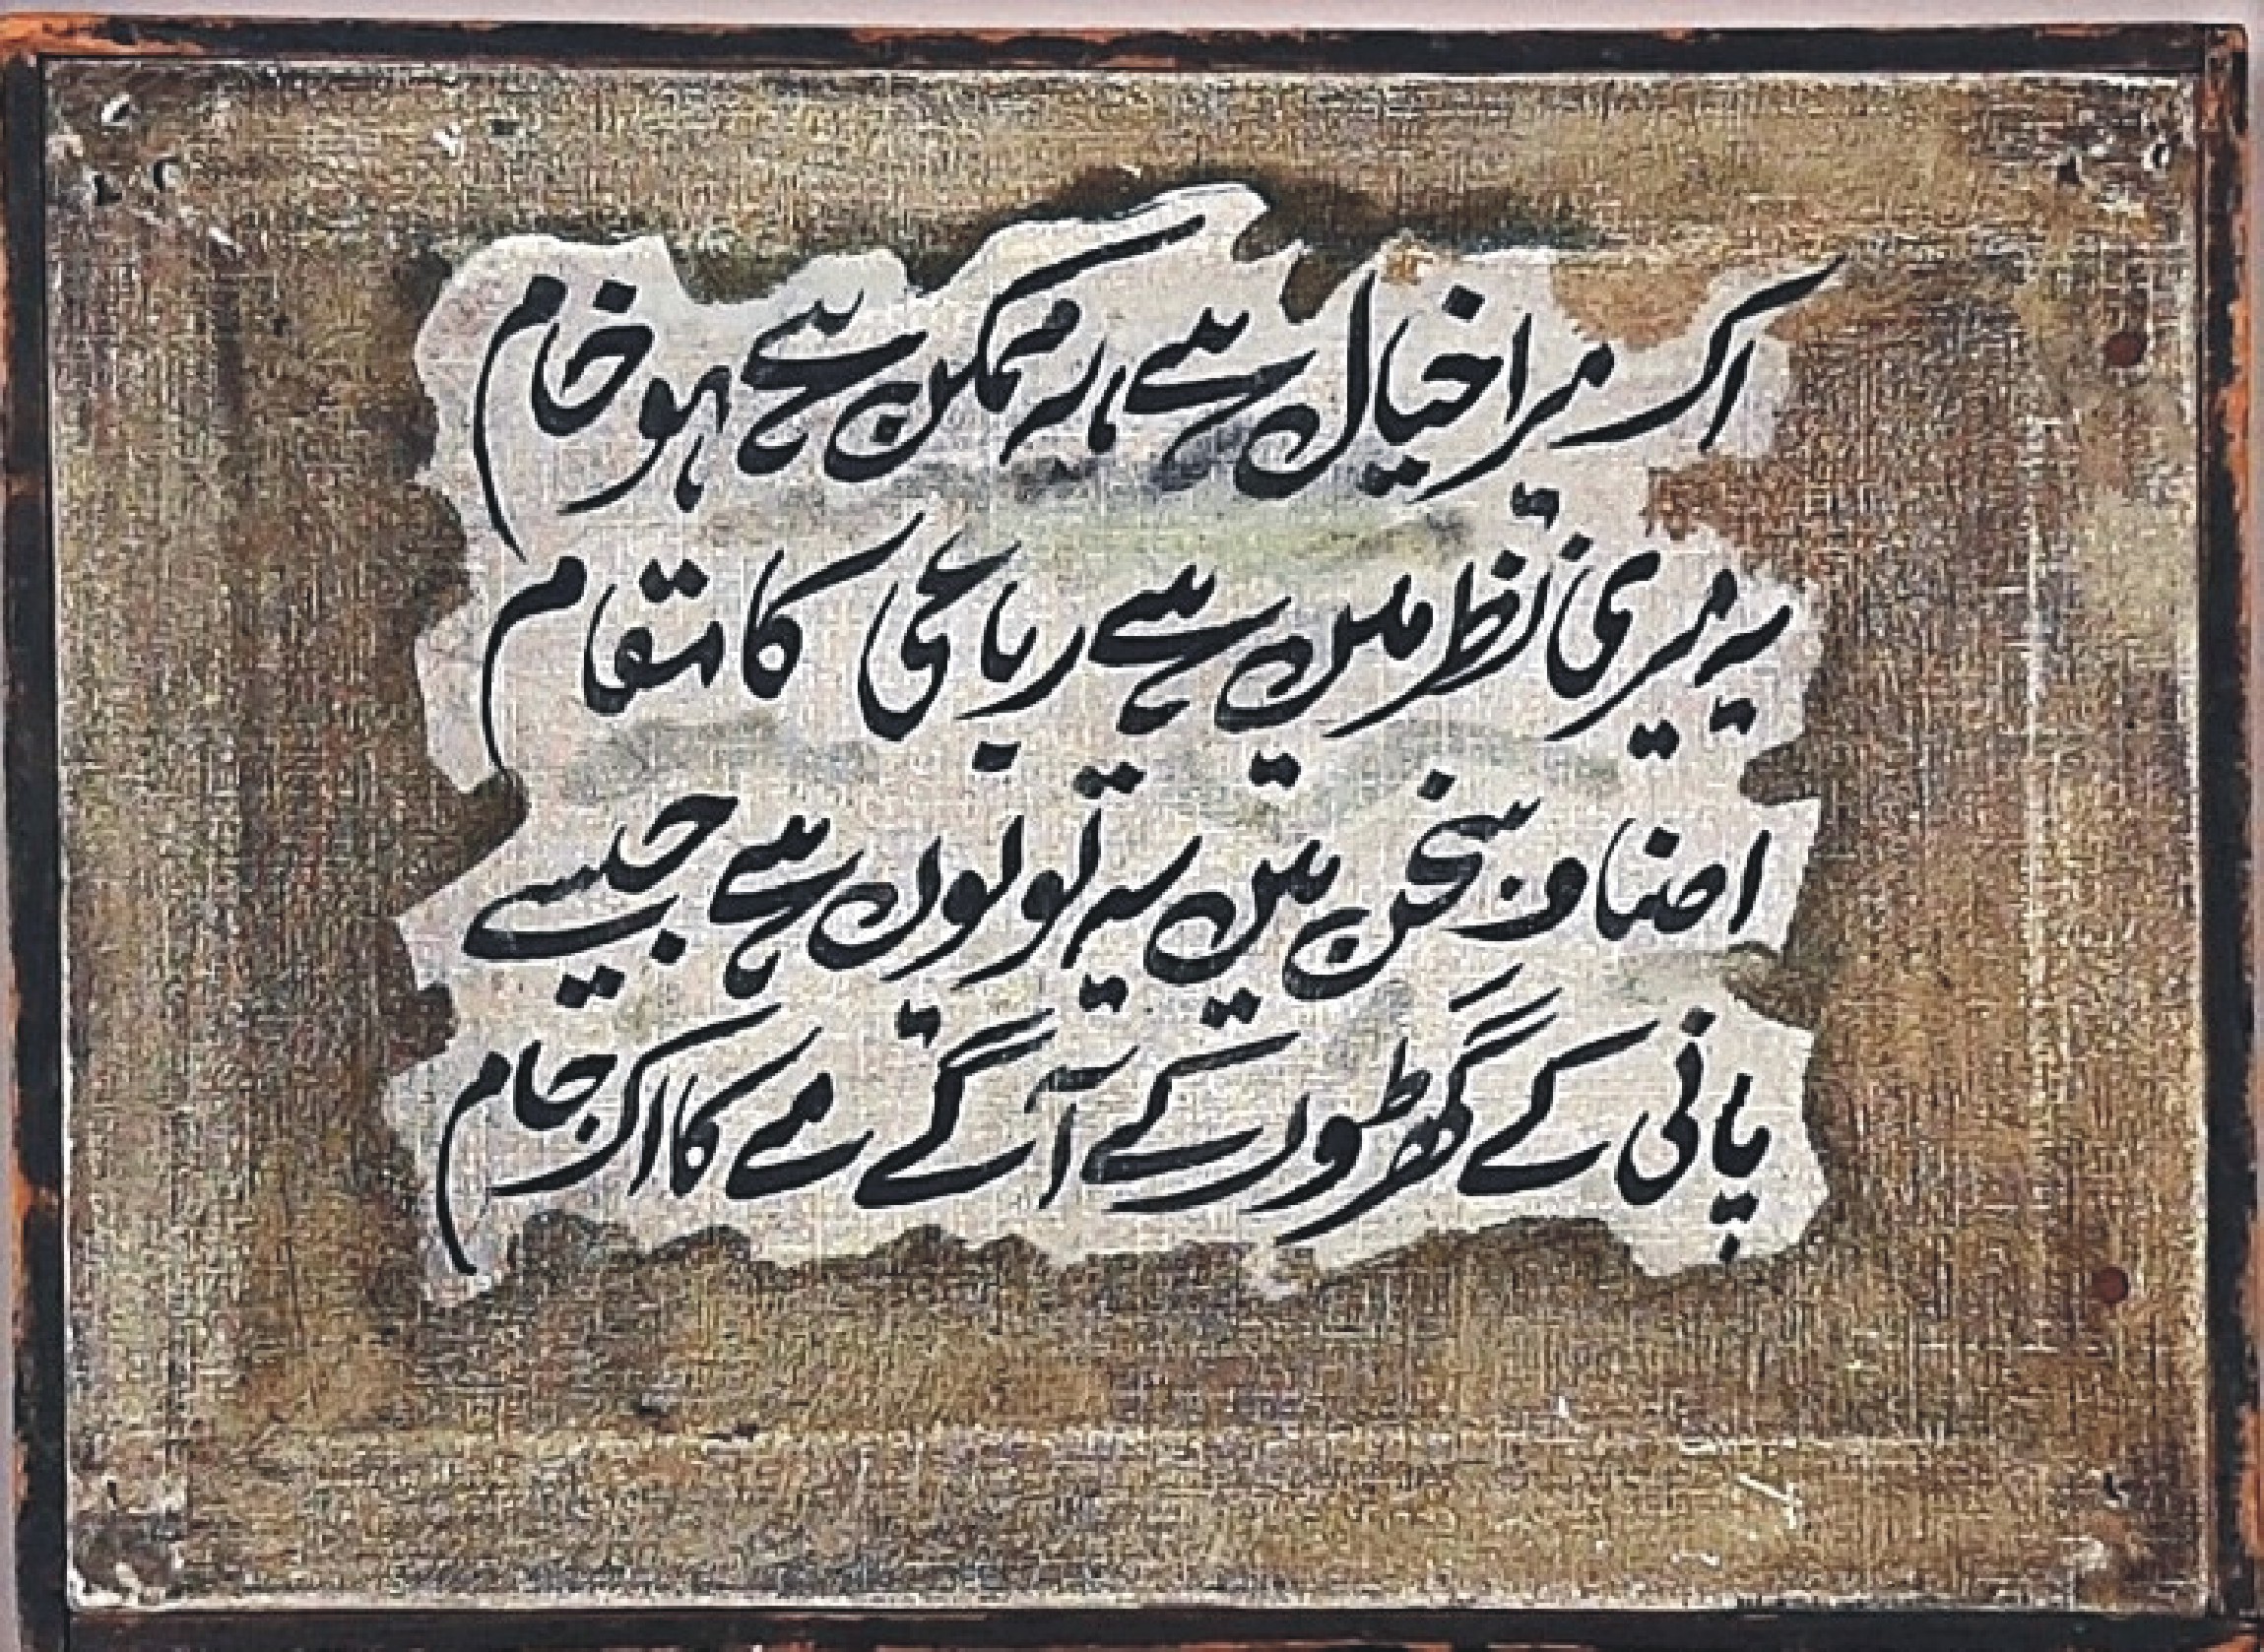 اک میرا خیال ہے، یہ ممکن ہے ہو خام
یہ میری نظر میں ہے رباعی کا مقام
اصناف سخن میں یہ تو یوں ہے جیسے
پانی کے گھڑوں کے آگے مے کا اک جام